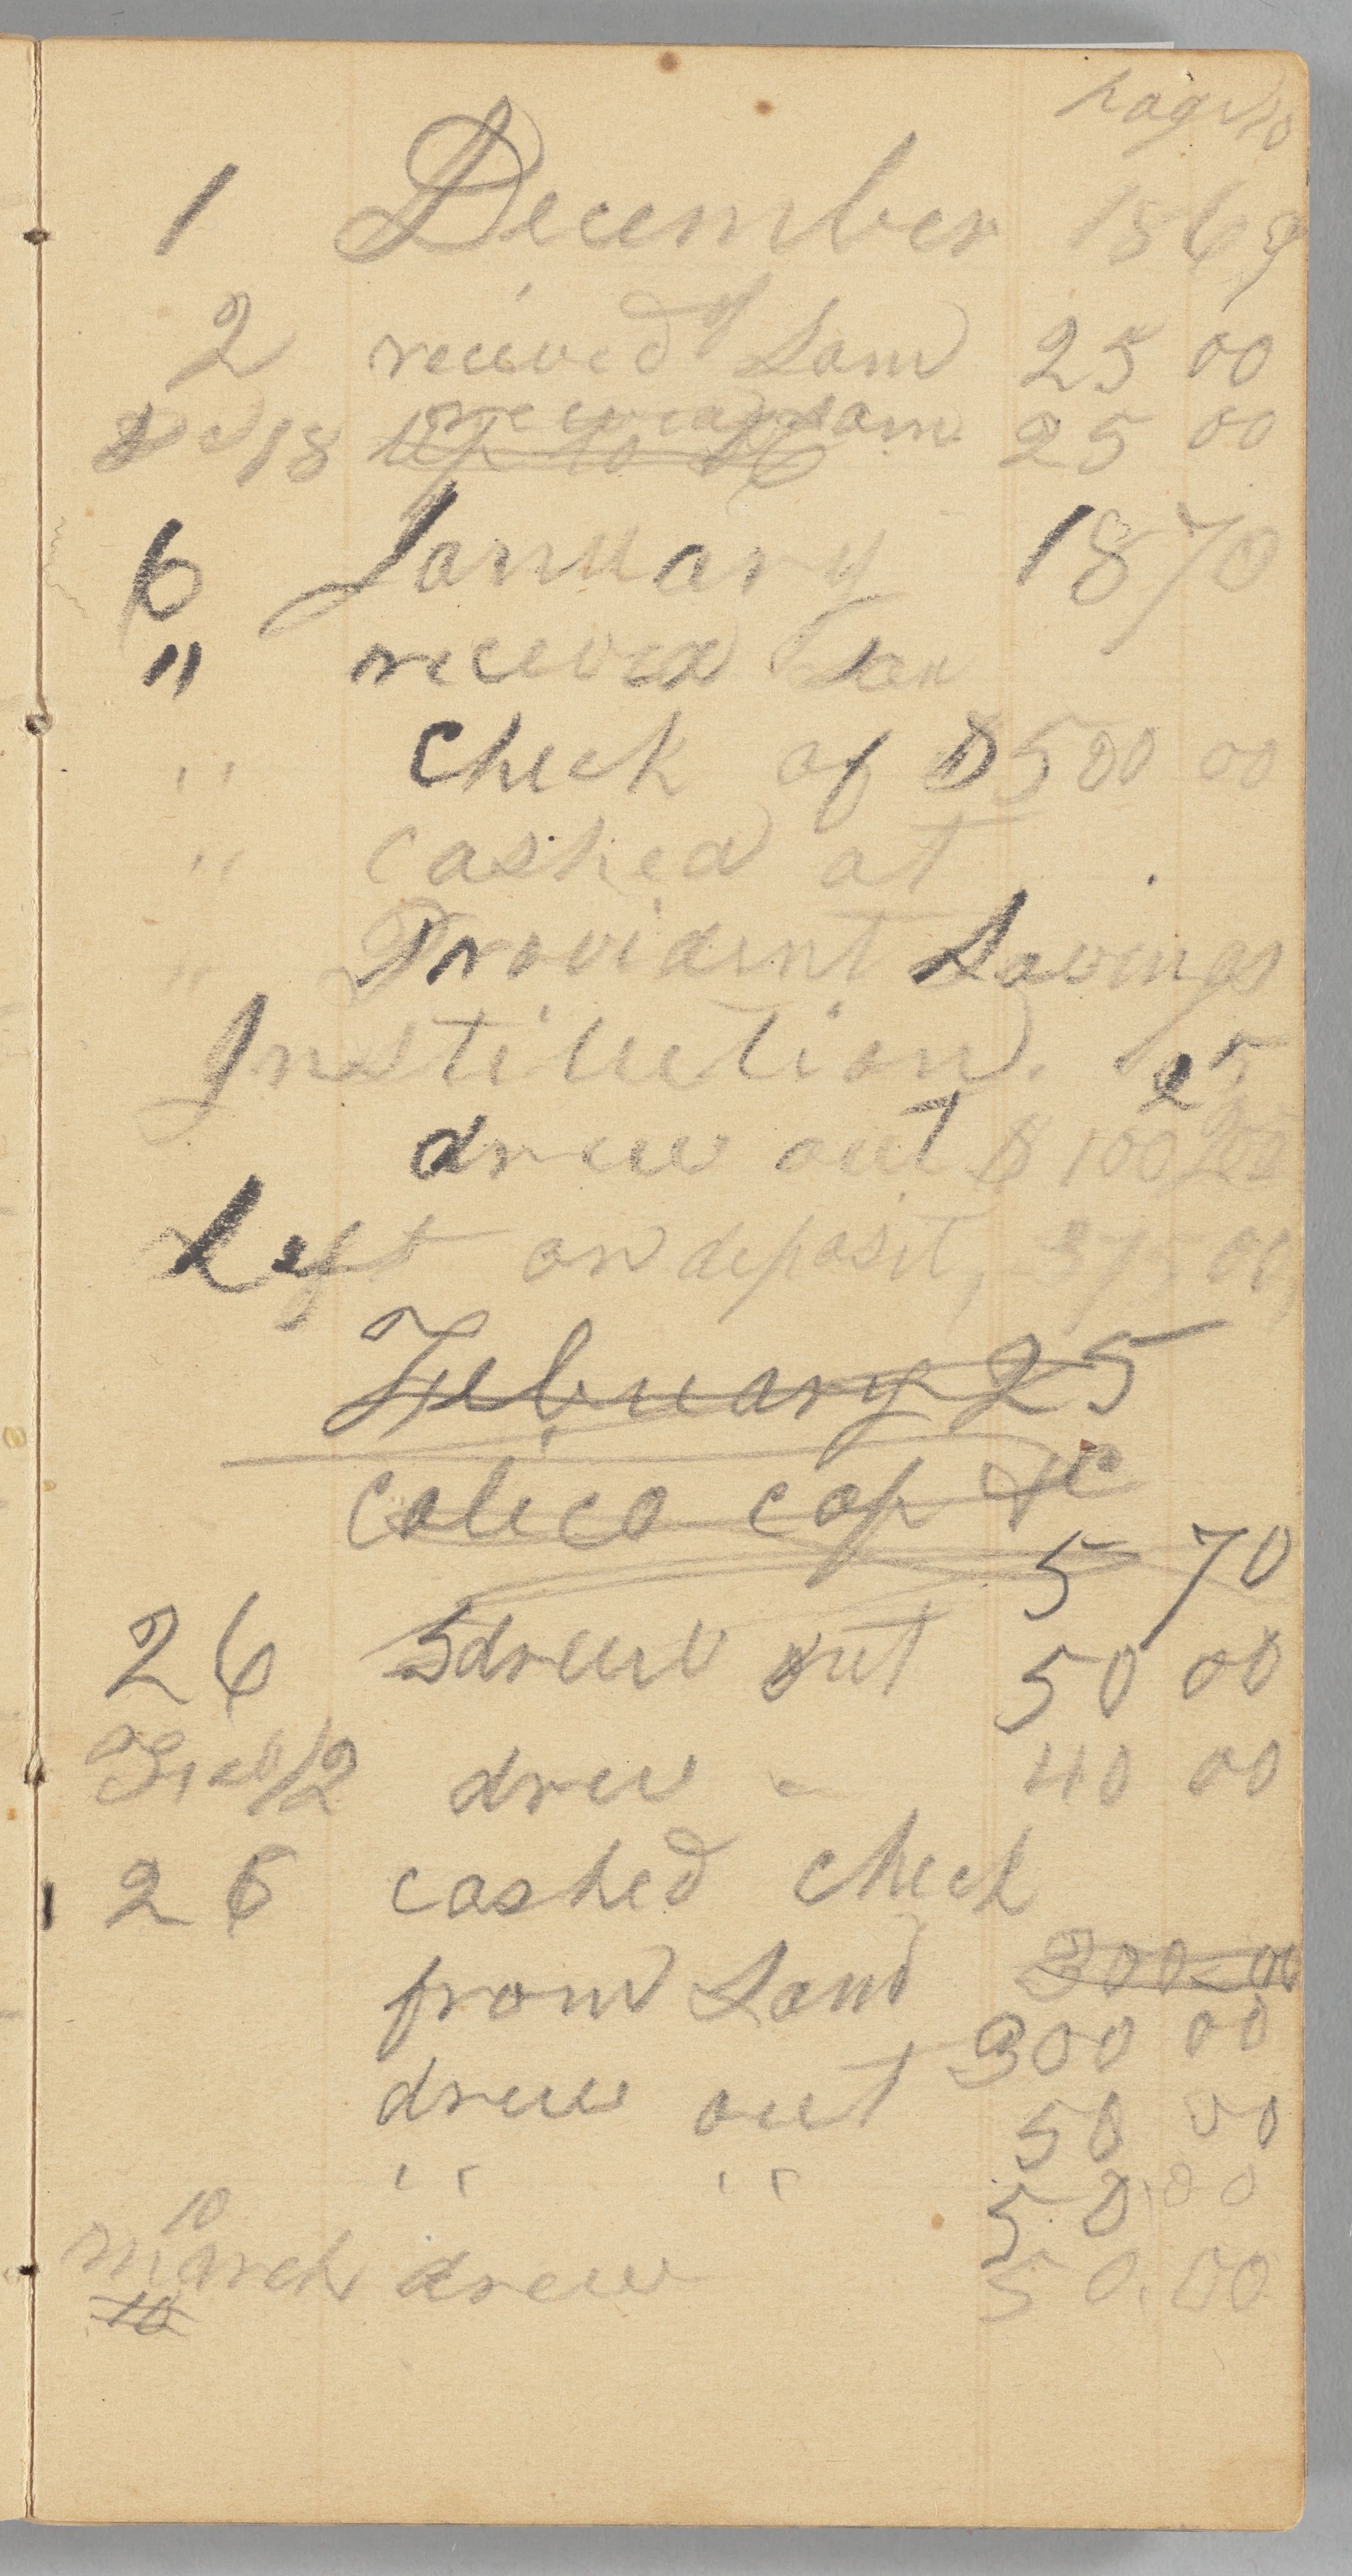 1 December 1869
2 received of Sam 25 00
Dec 18 received Sam 25 00
6 January 1870
" received
" Check of $500 00
" cashed at
" Provident Savings
Institution. 25
drew out $ 100
Left on deposit,
February 25
calico cap &c
5 70
26 drew out 50 00
Feb 12 drew 40 00
26 cashed check
from Sam 300 00
300 00
drew out 50 00
" " 50.00
10
March drew 50.00
10